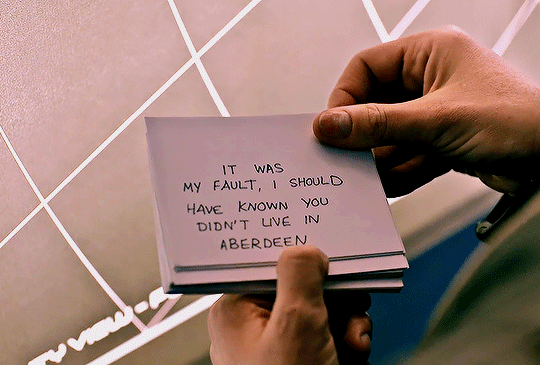 IT WAS
MY FAULT, I SHOULD
HAVE KNOWN YOU
DIDN'T LIVE IN
ABERDEEN
TY VIEW